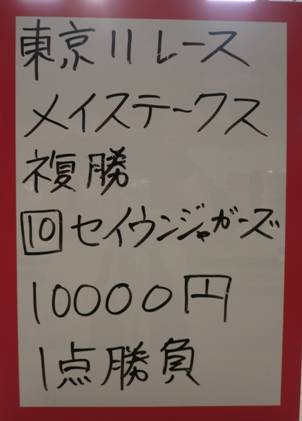 東京11レース
メイステークス
複勝
10 セイウンジャガーズ
10000円
1点勝負